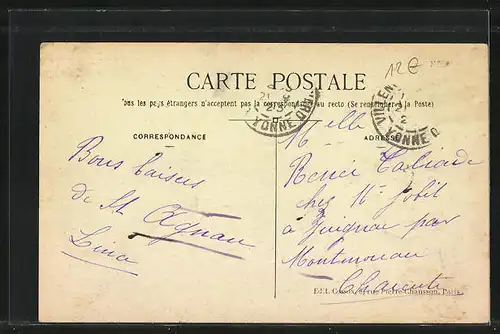 12€
CARTE POSTALE
Tous les pays étrangers n'acceptent pas la correspondance au recto (Se renseigner à la Poste)
CORRESPONDANCE
ADRESSE
Bons baisers
de St Agnan
Lina
VILLEN
YONNE
YONNE
Melle
Renée
chez Mr Jobit
à Juignac par
Montmoreau
Charente
Pierre Chausson, Paris